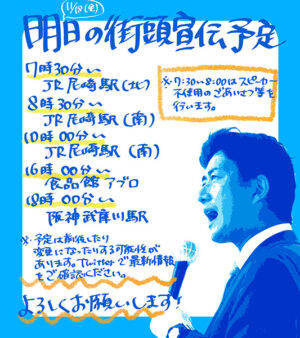 11/18(金)
明日の街頭宣伝予定
7時30分〜
JR尼崎駅(北)
※7:30〜8:00はスピーカー
不使用のごあいさつ等を
行います。
8時30分〜
JR尼崎駅(南)
10時00分〜
JR尼崎駅(南)
16時00分〜
食品館アプロ
18時00分〜
阪神武庫川駅
※予定は前後したり
変更になったりする可能性が
あります。Twitterで最新情報
をご確認ください。
よろしくお願いします!